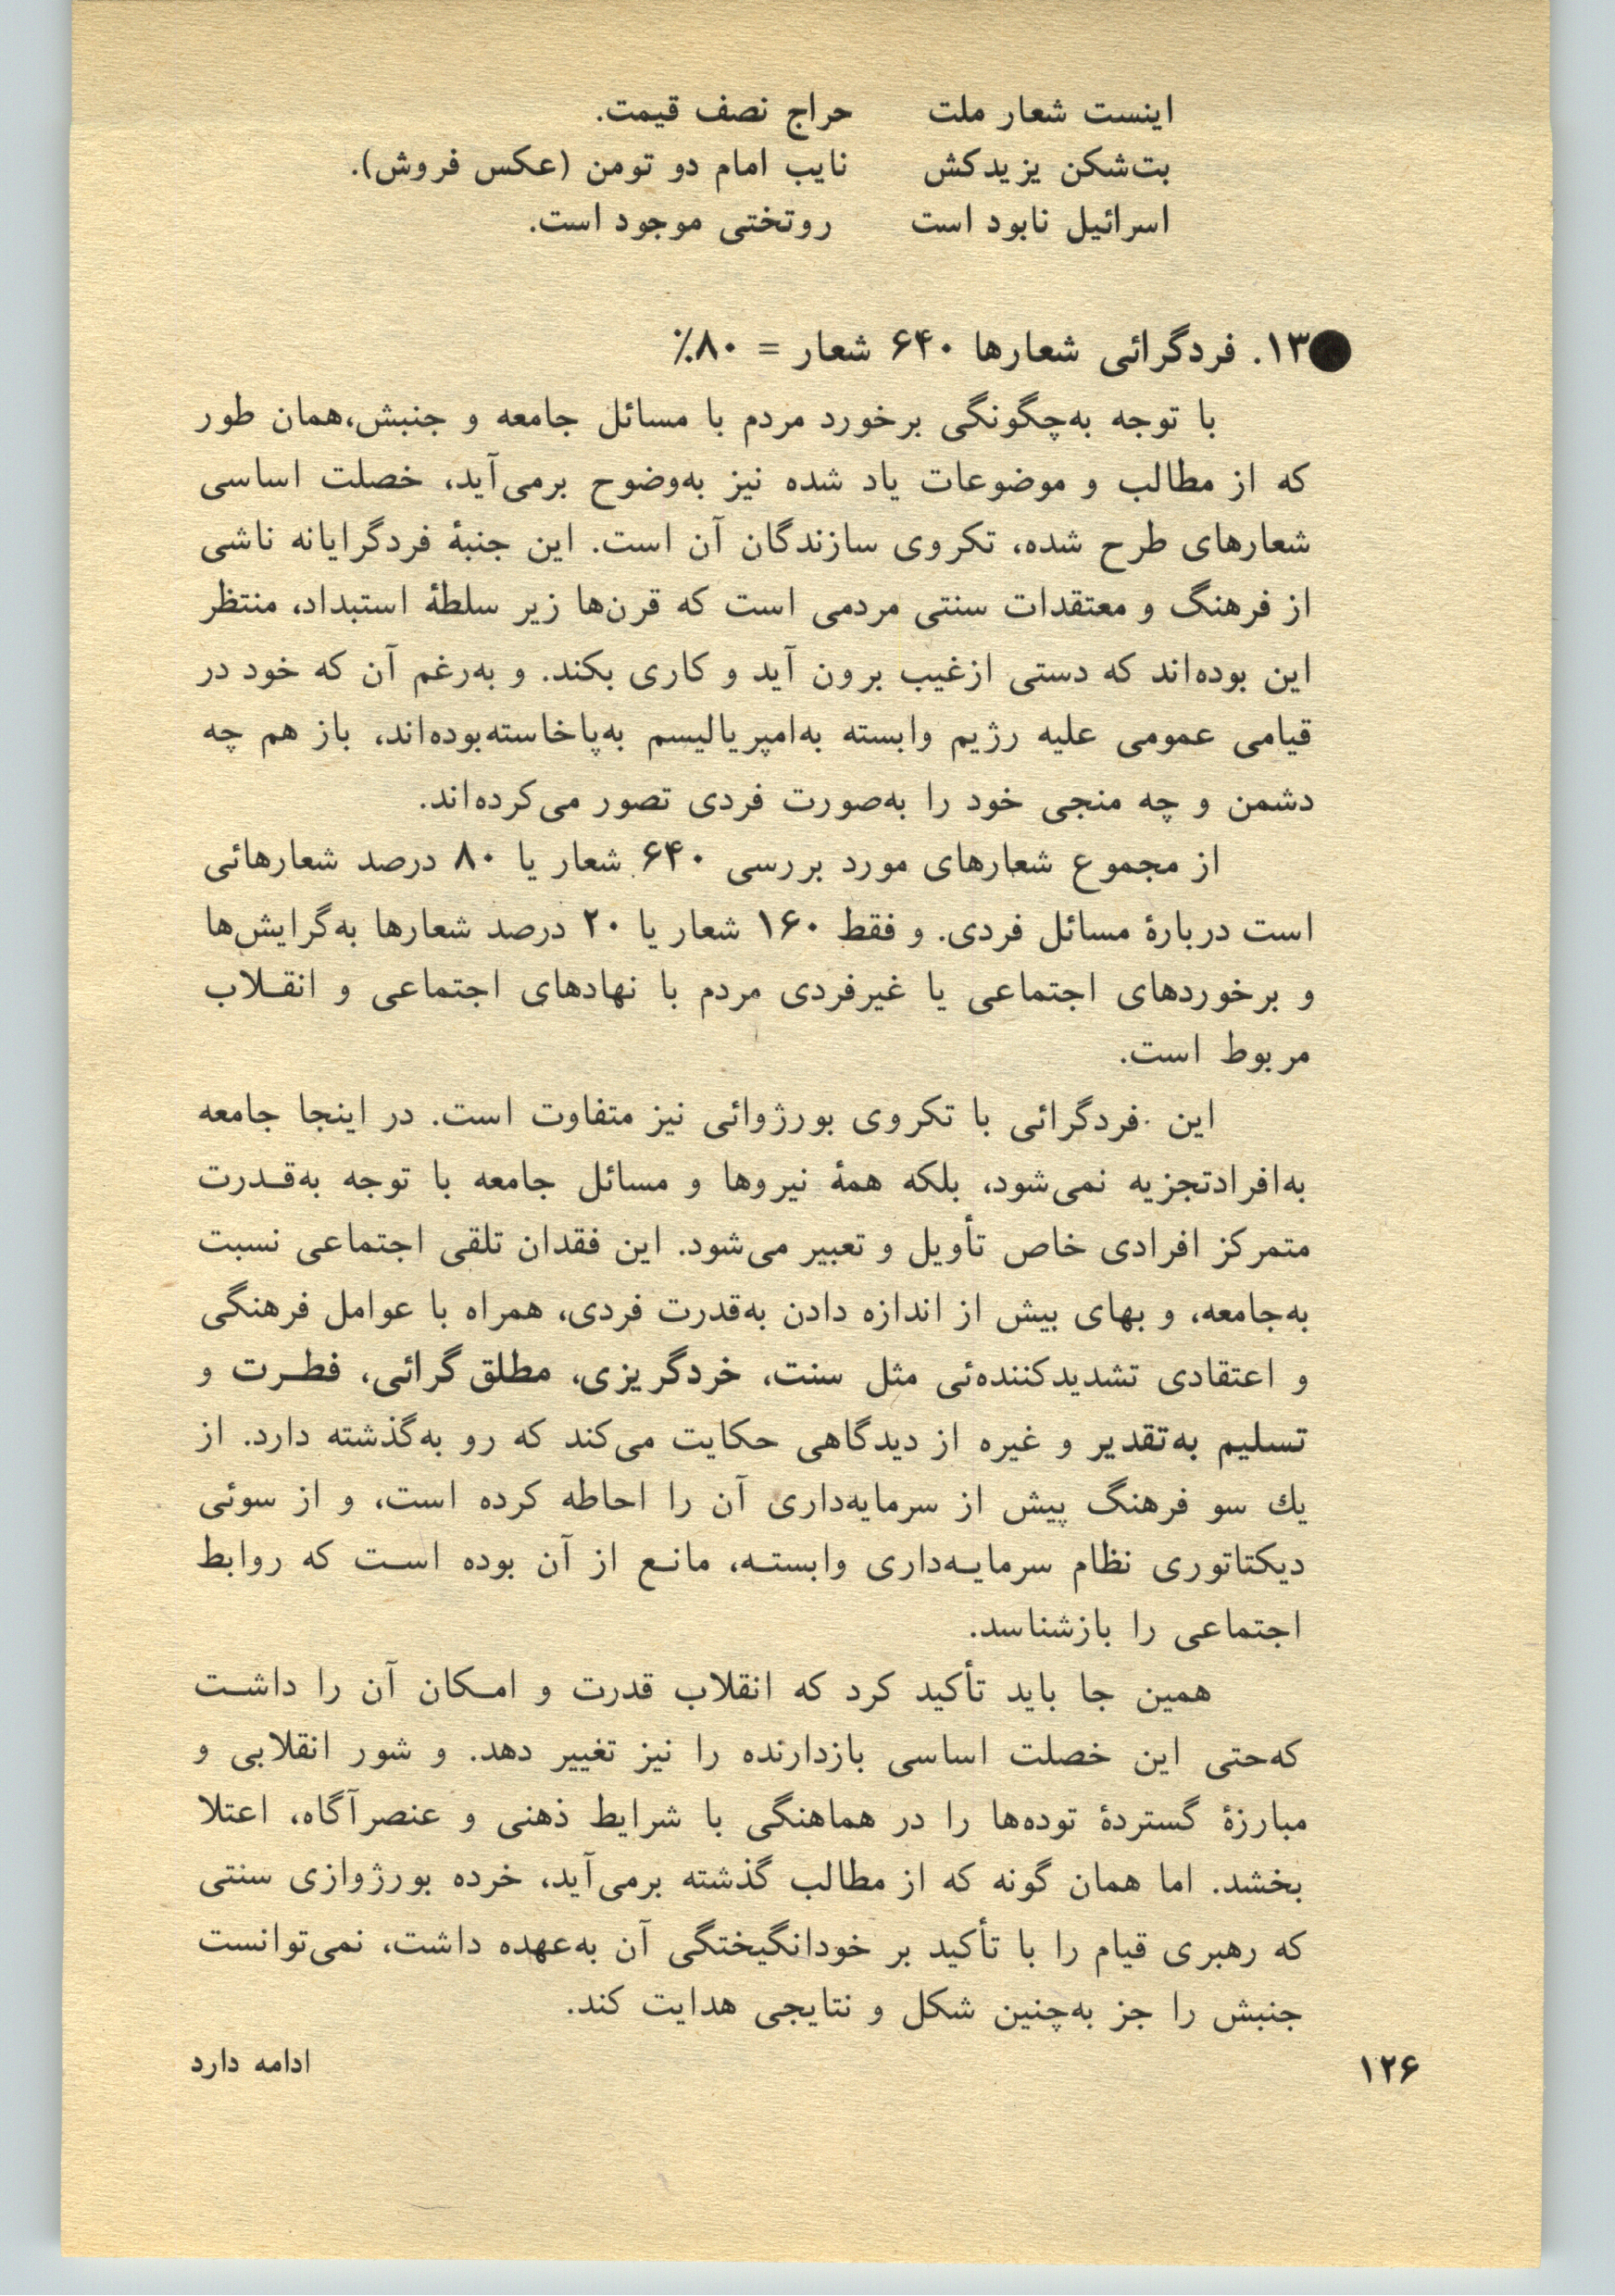 اینست شعار ملت حراج نصف قیمت.
بت‌شکن یزیدکش نایب امام دو تومن (عکس فروش).
اسرائیل نابود است روتختی موجود است.
●۱۳. فردگرائی شعارها ۶۴۰ شعار = ۸۰٪
با توجه به‌چگونگی برخورد مردم با مسائل جامعه و جنبش،همان طور
که از مطالب و موضوعات یاد شده نیز به‌وضوح برمی‌آید، خصلت اساسی
شعارهای طرح شده، تکروی سازندگان آن است. این جنبهٔ فردگرایانه ناشی
از فرهنگ و معتقدات سنتی مردمی است که قرن‌ها زیر سلطهٔ استبداد، منتظر
این بوده‌اند که دستی ازغیب برون آید و کاری بکند. و به‌رغم آن که خود در
قیامی عمومی علیه رژیم وابسته به‌امپریالیسم به‌پاخاسته‌بوده‌اند، باز هم چه
دشمن و چه منجی خود را به‌صورت فردی تصور می‌کرده‌اند.
از مجموع شعارهای مورد بررسی ۶۴۰ شعار یا ۸۰ درصد شعارهائی
است دربارهٔ مسائل فردی. و فقط ۱۶۰ شعار یا ۲۰ درصد شعارها به‌گرایش‌ها
و برخوردهای اجتماعی یا غیرفردی مردم با نهادهای اجتماعی و انقـلاب
مربوط است.
این فردگرائی با تکروی بورژوائی نیز متفاوت است. در اینجا جامعه
به‌افرادتجزیه نمی‌شود، بلکه همهٔ نیروها و مسائل جامعه با توجه به‌قـدرت
متمرکز افرادی خاص تأویل و تعبیر می‌شود. این فقدان تلقی اجتماعی نسبت
به‌جامعه، و بهای بیش از اندازه دادن به‌قدرت فردی، همراه با عوامل فرهنگی
و اعتقادی تشدیدکننده‌ئی مثل سنت، خردگریزی، مطلق‌گرائی، فطـرت و
تسلیم به‌تقدیر و غیره از دیدگاهی حکایت می‌کند که رو به‌گذشته دارد. از
یك سو فرهنگ پیش از سرمایه‌داری آن را احاطه کرده است، و از سوئی
دیکتاتوری نظام سرمایـه‌داری وابستـه، مانـع از آن بوده اسـت که روابط
اجتماعی را بازشناسد.
همین جا باید تأکید کرد که انقلاب قدرت و امـکان آن را داشـت
که‌حتی این خصلت اساسی بازدارنده را نیز تغییر دهد. و شور انقلابی و
مبارزهٔ گستردهٔ توده‌ها را در هماهنگی با شرایط ذهنی و عنصرآگاه، اعتلا
بخشد. اما همان گونه که از مطالب گذشته برمی‌آید، خرده بورژوازی سنتی
که رهبری قیام را با تأکید بر خودانگیختگی آن به‌عهده داشت، نمی‌توانست
جنبش را جز به‌چنین شکل و نتایجی هدایت کند.
ادامه دارد
۱۲۶